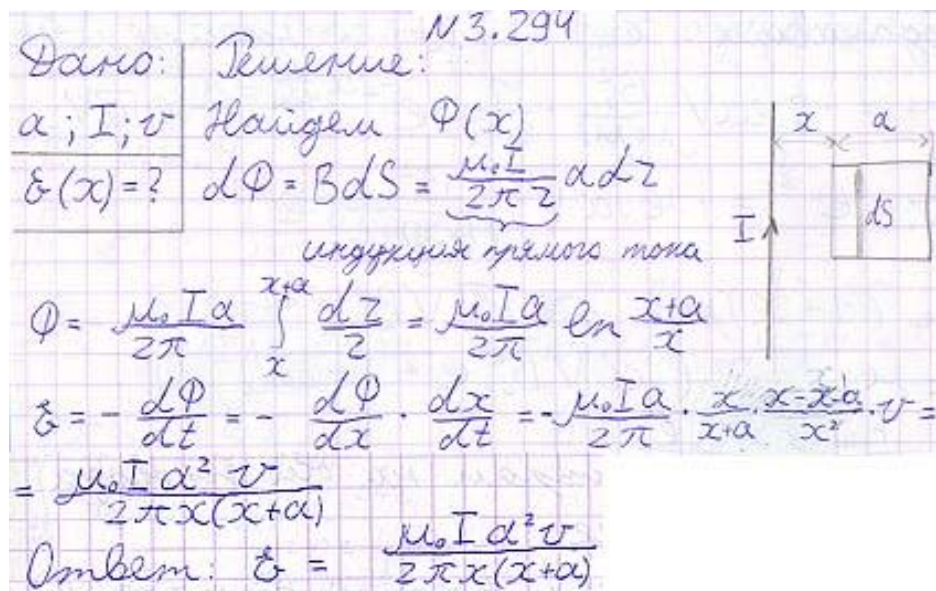 N3.294
Дано: Решение:
a; I; v Найдем Φ(x)
ℰ(x)=? dΦ = BdS = μ₀I/(2πr) a dr
индукция прямого тока
x a
I dS
Φ = μ₀Ia/(2π) ∫ₓˣ⁺ᵃ dr/r = μ₀Ia/(2π) ln (x+a)/x
ℰ = - dΦ/dt = - dΦ/dx · dx/dt = - μ₀Ia/(2π) · x/(x+a) · (x-x-a)/x² · v =
= μ₀Ia²v/(2πx(x+a))
Ответ: ℰ = μ₀Ia²v/(2πx(x+a))